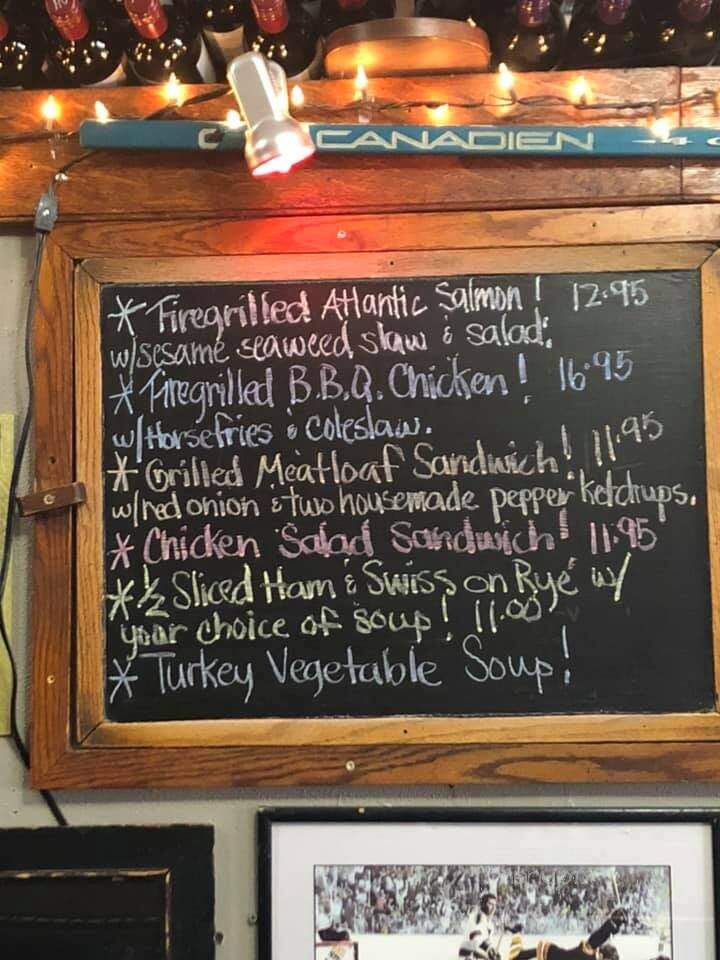 CANADIEN
* Firegrilled Atlantic Salmon! 12.95
w/sesame seaweed slaw & salad.
* Firegrilled B.B.Q. Chicken! 16.95
w/Horsefries & coleslaw.
* Grilled Meatloaf Sandwich! 11.95
w/red onion & two housemade pepper ketchups.
* Chicken Salad Sandwich! 11.95
* ½ Sliced Ham & Swiss on Rye w/
your choice of soup! 11.00
* Turkey Vegetable Soup!